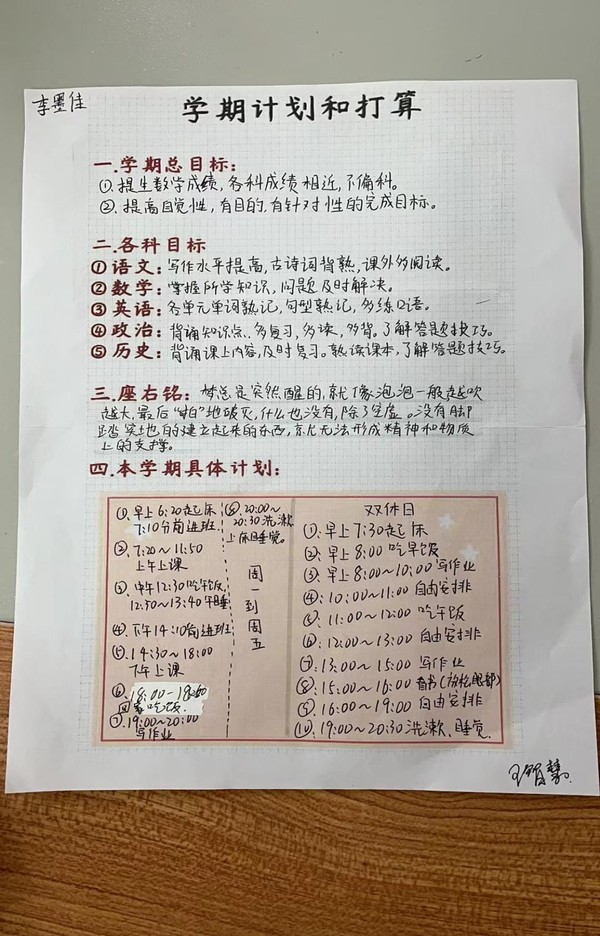 李墨佳
学期计划和打算
一.学期总目标:
①.提生数学成绩,各科成绩相近,不偏科。
②.提高自觉性,有目的,有针对性的完成目标。
二.各科目标
①语文:写作水平提高,古诗词背熟,课外多阅读。
②数学:掌握所学知识,问题及时解决。
③英语:各单元单词熟记,句型熟记,多练口语。
④政治:背诵知识点.多复习,多读,多背。了解答题技巧。
⑤历史:背诵课上内容,及时复习。熟读课本,了解答题技巧。
三.座右铭:梦总是突然醒的,就像泡泡一般越吹
越大,最后"啪"地破灭,什么也没有,除了空虚。没有脚
踏实地的建立起来的东西,就无法形成精神和物质
上的支撑。
四.本学期具体计划:
①.早上6:20起床
7:10分前进班
②.7:20~11:50
上午上课
③.中午12:30吃午饭,
12:50~13:40午睡
④.下午14:10前进班
⑤.14:30~18:00
下午上课
⑥.18:00-18:
回家吃饭.
⑦.19:00~20:00
写作业
⑧.20:00~
20:30洗漱
上床睡觉。
周一到周五
双休日
①.早上7:30起床
②.早上8:00吃早饭
③.早上8:00~10:00写作业
④.10:00~11:00自由安排
⑤.11:00~12:00吃午饭
⑥.12:00~13:00自由安排
⑦.13:00~15:00写作业
⑧.15:00~16:00看书(放松眼部)
⑨.16:00~19:00自由安排
⑩.19:00~20:30洗漱、睡觉.